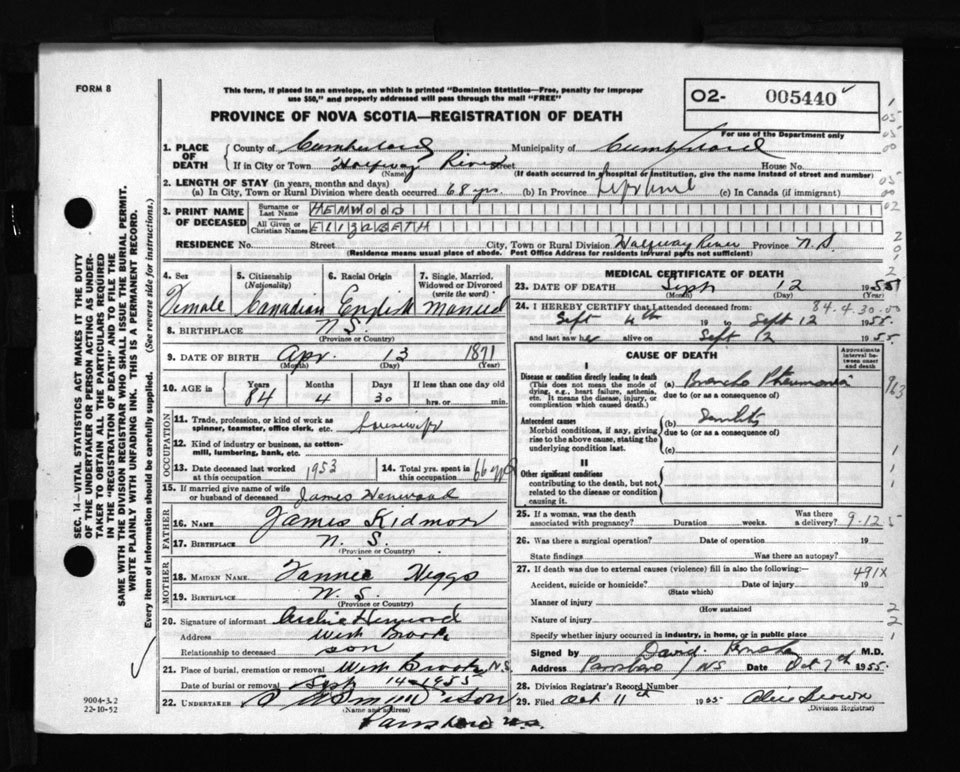 FORM 8
This form, if placed in an envelope, on which is printed "Dominion Statistics—Free, penalty for improper
use $50," and properly addressed will pass through the mail "FREE"
02- 005440
PROVINCE OF NOVA SCOTIA—REGISTRATION OF DEATH
For use of the Department only
1. PLACE OF DEATH
County of Cumberland Municipality of Cumberland
If in City or Town Halfway River Street House No.
(Name) (If death occurred in a hospital or institution, give the name instead of street and number)
2. LENGTH OF STAY (in years, months and days)
(a) In City, Town or Rural Division where death occurred 68 yrs. (b) In Province Lifetime (c) In Canada (if immigrant)
3. PRINT NAME OF DECEASED
Surname or Last Name HENWOOD
All Given or Christian Names ELIZABETH
RESIDENCE No. Street City, Town or Rural Division Halfway River Province N.S.
(Residence means usual place of abode. Post Office Address for residents in rural parts not sufficient)
4. Sex Female
5. Citizenship (Nationality) Canadian
6. Racial Origin English
7. Single, Married, Widowed or Divorced (write the word) Married
8. BIRTHPLACE N.S.
(Province or Country)
9. DATE OF BIRTH Apr. 13 1871
(Month) (Day) (Year)
10. AGE in Years 84 Months 4 Days 30 If less than one day old
hrs. or min.
OCCUPATION
11. Trade, profession, or kind of work as spinner, teamster, office clerk, etc. housewife
12. Kind of industry or business, as cotton-mill, lumbering, bank, etc.
13. Date deceased last worked at this occupation 1953
14. Total yrs. spent in this occupation 66 yrs
15. If married give name of wife or husband of deceased James Henwood
FATHER
16. NAME James Kidmore
17. BIRTHPLACE N.S.
(Province or Country)
MOTHER
18. MAIDEN NAME Fannie Higgs
19. BIRTHPLACE N.S.
(Province or Country)
20. Signature of informant Archie Henwood
Address West Brook
Relationship to deceased son
21. Place of burial, cremation or removal West Brook N.S.
Date of burial or removal Sept 14 - 1955
22. UNDERTAKER
(Name and address)
Parrsboro N.S.
MEDICAL CERTIFICATE OF DEATH
23. DATE OF DEATH Sept 12 1955
(Month) (Day) (Year)
84.4.30.00
24. I HEREBY CERTIFY that I attended deceased from:
Sept 4th 19 to Sept 12 1955.
and last saw her alive on Sept 12 1955
CAUSE OF DEATH
Approximate interval between onset and death
I
Disease or condition directly leading to death
(This does not mean the mode of dying, e.g., heart failure, asthenia, etc. It means the disease, injury, or complication which caused death.)
(a) Broncho Pneumonia
due to (or as a consequence of)
Antecedent causes
Morbid conditions, if any, giving rise to the above cause, stating the underlying condition last.
(b) Senility
due to (or as a consequence of)
(c)
II
Other significant conditions
contributing to the death, but not related to the disease or condition causing it.
25. If a woman, was the death associated with pregnancy? Duration weeks. Was there a delivery?
9.12
26. Was there a surgical operation? Date of operation 19
State findings Was there an autopsy?
27. If death was due to external causes (violence) fill in also the following:—
491X
Accident, suicide or homicide? Date of injury 19
(State which)
Manner of injury
(How sustained
Nature of injury
Specify whether injury occurred in industry, in home, or in public place
Signed by David M.D.
Address Parrsboro NS Date Oct 7th 1955.
28. Division Registrar's Record Number
29. Filed Oct 11th 1955 Alice Brown
(Division Registrar)
SEC. 14—VITAL STATISTICS ACT MAKES IT THE DUTY
OF THE UNDERTAKER OR PERSON ACTING AS UNDER-
TAKER TO OBTAIN ALL THE PARTICULARS REQUIRED
IN THE "REGISTRATION OF DEATH" AND TO FILE THE
SAME WITH THE DIVISION REGISTRAR WHO SHALL ISSUE THE BURIAL PERMIT.
WRITE PLAINLY WITH UNFADING INK. THIS IS A PERMANENT RECORD.
Every item of information should be carefully supplied. (See reverse side for instructions.)
9004-3.2
22-10-52